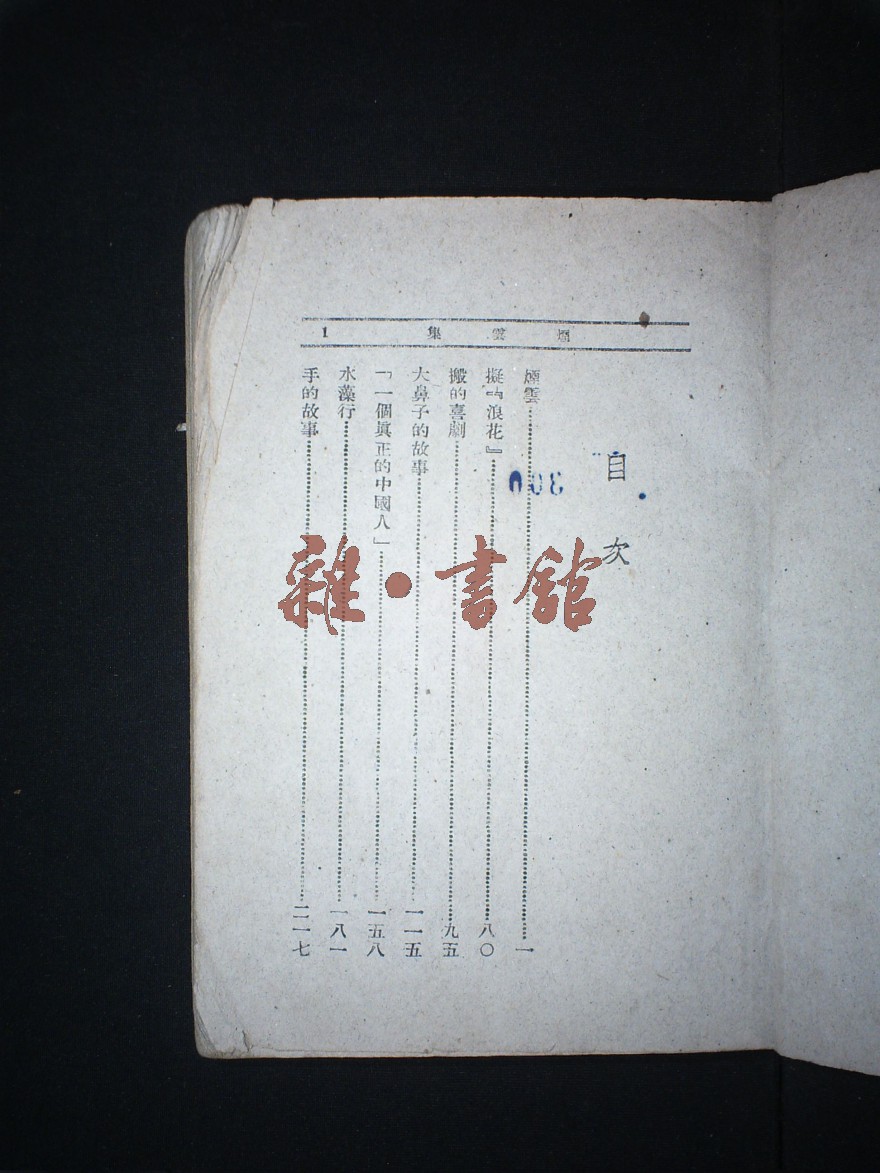 煙雲集 1
目次
煙雲……一
擬『浪花』……八〇
搬的喜劇……九五
大鼻子的故事……一一五
「一個眞正的中國人」……一五八
水藻行……一八一
手的故事……二一七
300
雜•書館